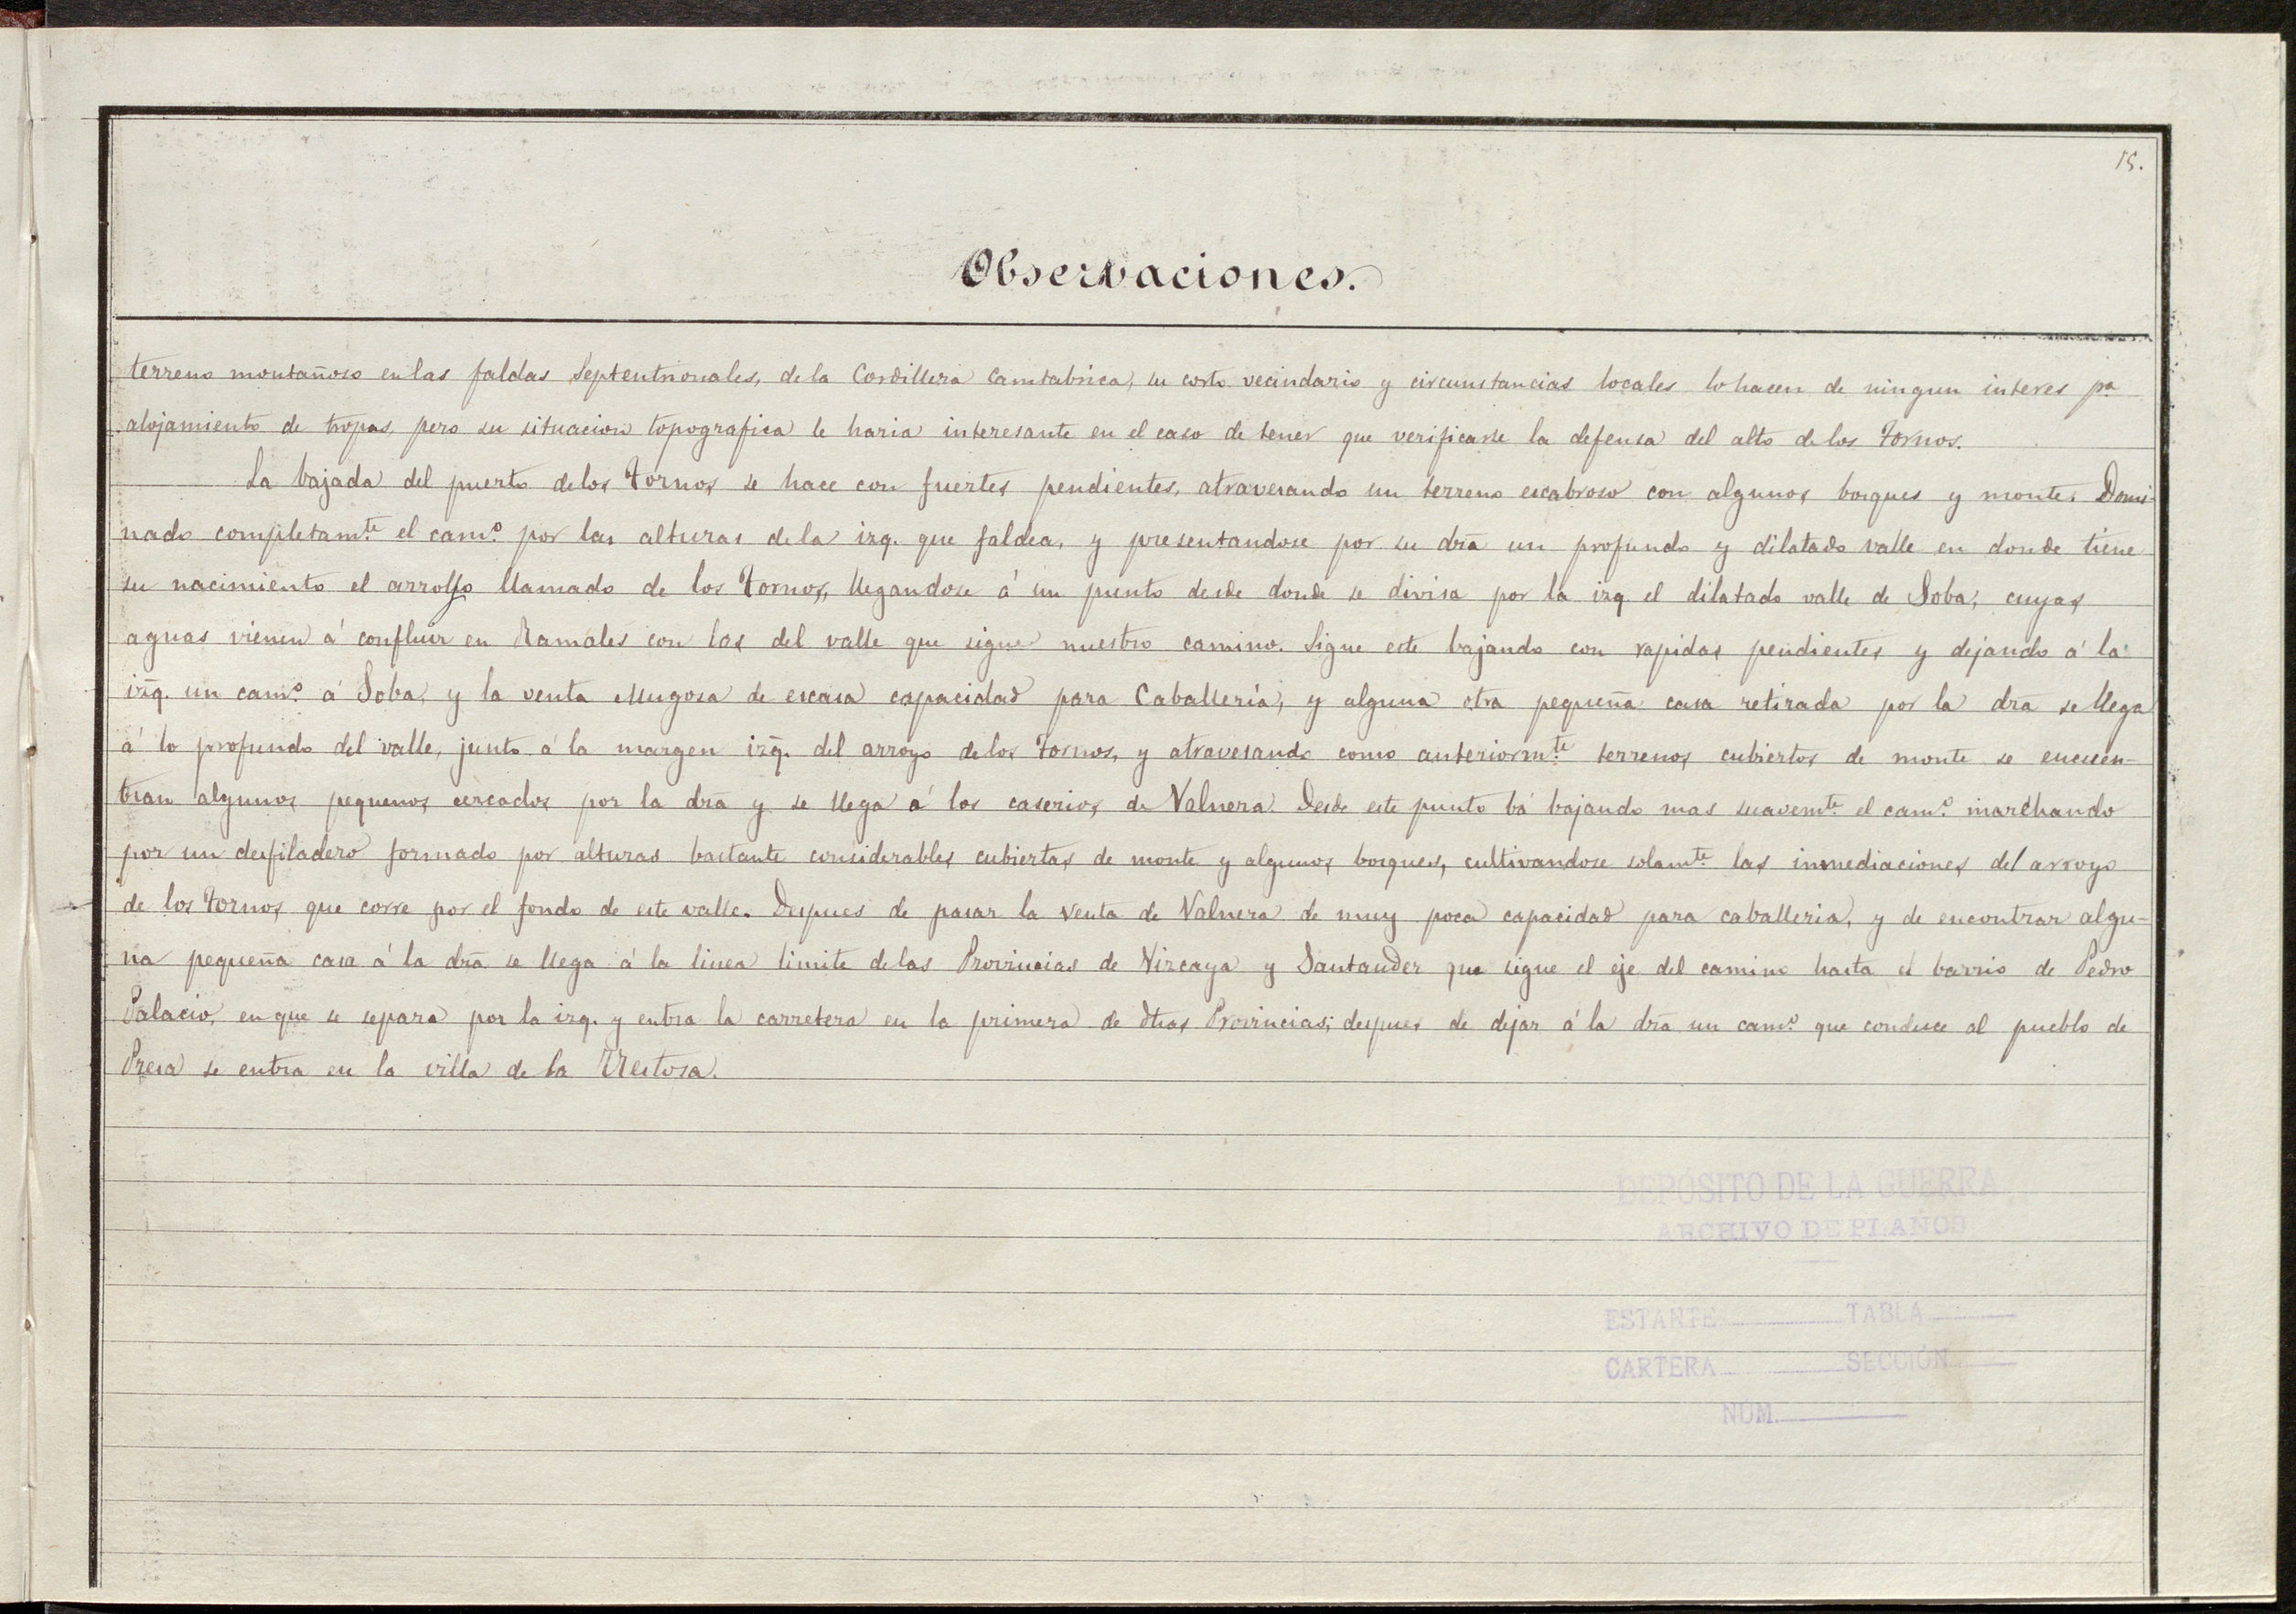 15.
Observaciones.
terreno montañoso en las faldas Septentrionales, de la Cordillera Cantabrica, su corto vecindario y circunstancias locales lo hacen de ningun interes pa
alojamiento de tropas, pero su situacion topografica le haria interesante en el caso de tener que verificarse la defensa del alto de los Tornos.
La bajada del puerto de los Tornos se hace con fuertes pendientes, atravesando un terreno escabroso con algunos bosques y montes. Domi-
nado completamte el camo por las alturas de la izq. que faldea, y presentandose por su dra un profundo y dilatado valle en donde tiene
su nacimiento el arrollo llamado de los Tornos, llegandose á un punto desde donde se divisa por la izq el dilatado valle de Soba, cuyas
aguas vienen á confluir en Ramales con las del valle que sigue nuestro camino. Sigue este bajando con rapidas pendientes y dejando á la
izq. un camo á Soba, y la venta Mugosa de escasa capacidad para Caballeria, y alguna otra pequeña casa retirada por la dra se llega
á lo profundo del valle, junto á la margen izq. del arroyo de los Tornos, y atravesando como anteriormte terrenos cubiertos de monte se encuen-
tran algunos pequenos cercados por la dra y se llega á los caserios de Valnera. Desde este punto bá bajando mas suavemte el camo marchando
por un desfiladero formado por alturas bastante considerables cubiertas de monte y algunos bosques, cultivandose solamte las inmediaciones del arroyo
de los Tornos que corre por el fondo de este valle. Despues de pasar la venta de Valnera de muy poca capacidad para caballeria, y de encontrar algu-
na pequeña casa á la dra se llega á la linea limite de las Provincias de Vizcaya y Santander que sigue el eje del camino hasta el barrio de Pedro
Palacio, en que se separa por la izq. y entra la carretera en la primera de dhas Provincias; despues de dejar á la dra un camo que conduce al pueblo de
Presa se entra en la villa de la Nestosa.
DEPÓSITO DE LA GUERRA
ARCHIVO DE PLANOS
ESTANTE TABLA
CARTERA SECCIÓN
NÚM.